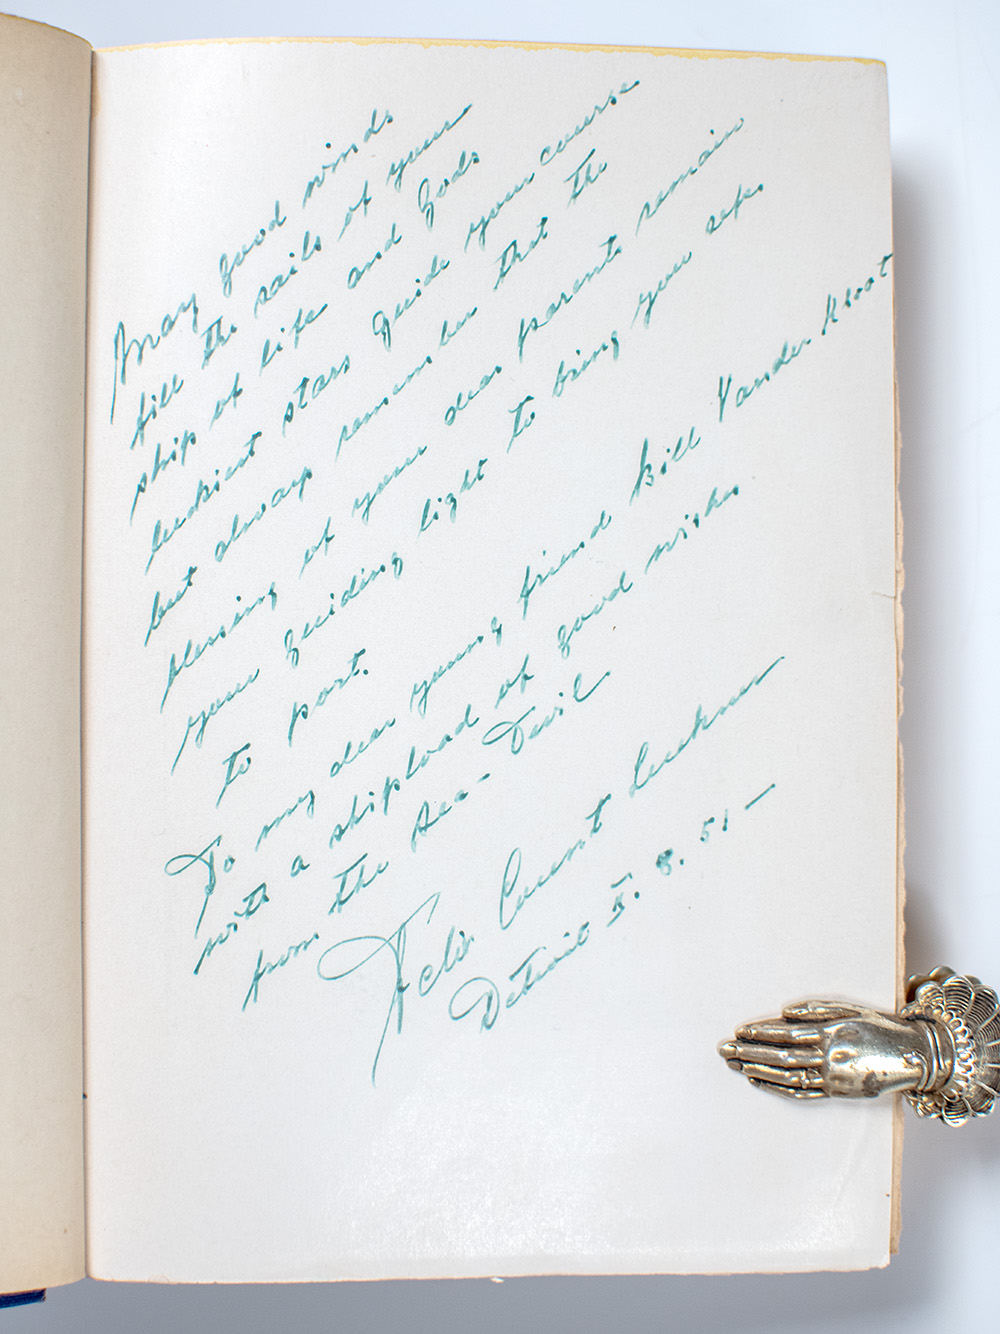 May good winds
fill the sails of your
ship of life and Gods
luckiest stars guide your course
but always remember that the
blessing of your dear parents remain
your guiding light to bring you safe
to port.
To my dear young friend Bill Vander Kloot
with a shipload of good wishes
from the Sea-Devil
Felix Count Luckner
Detroit 5. 8. 51-